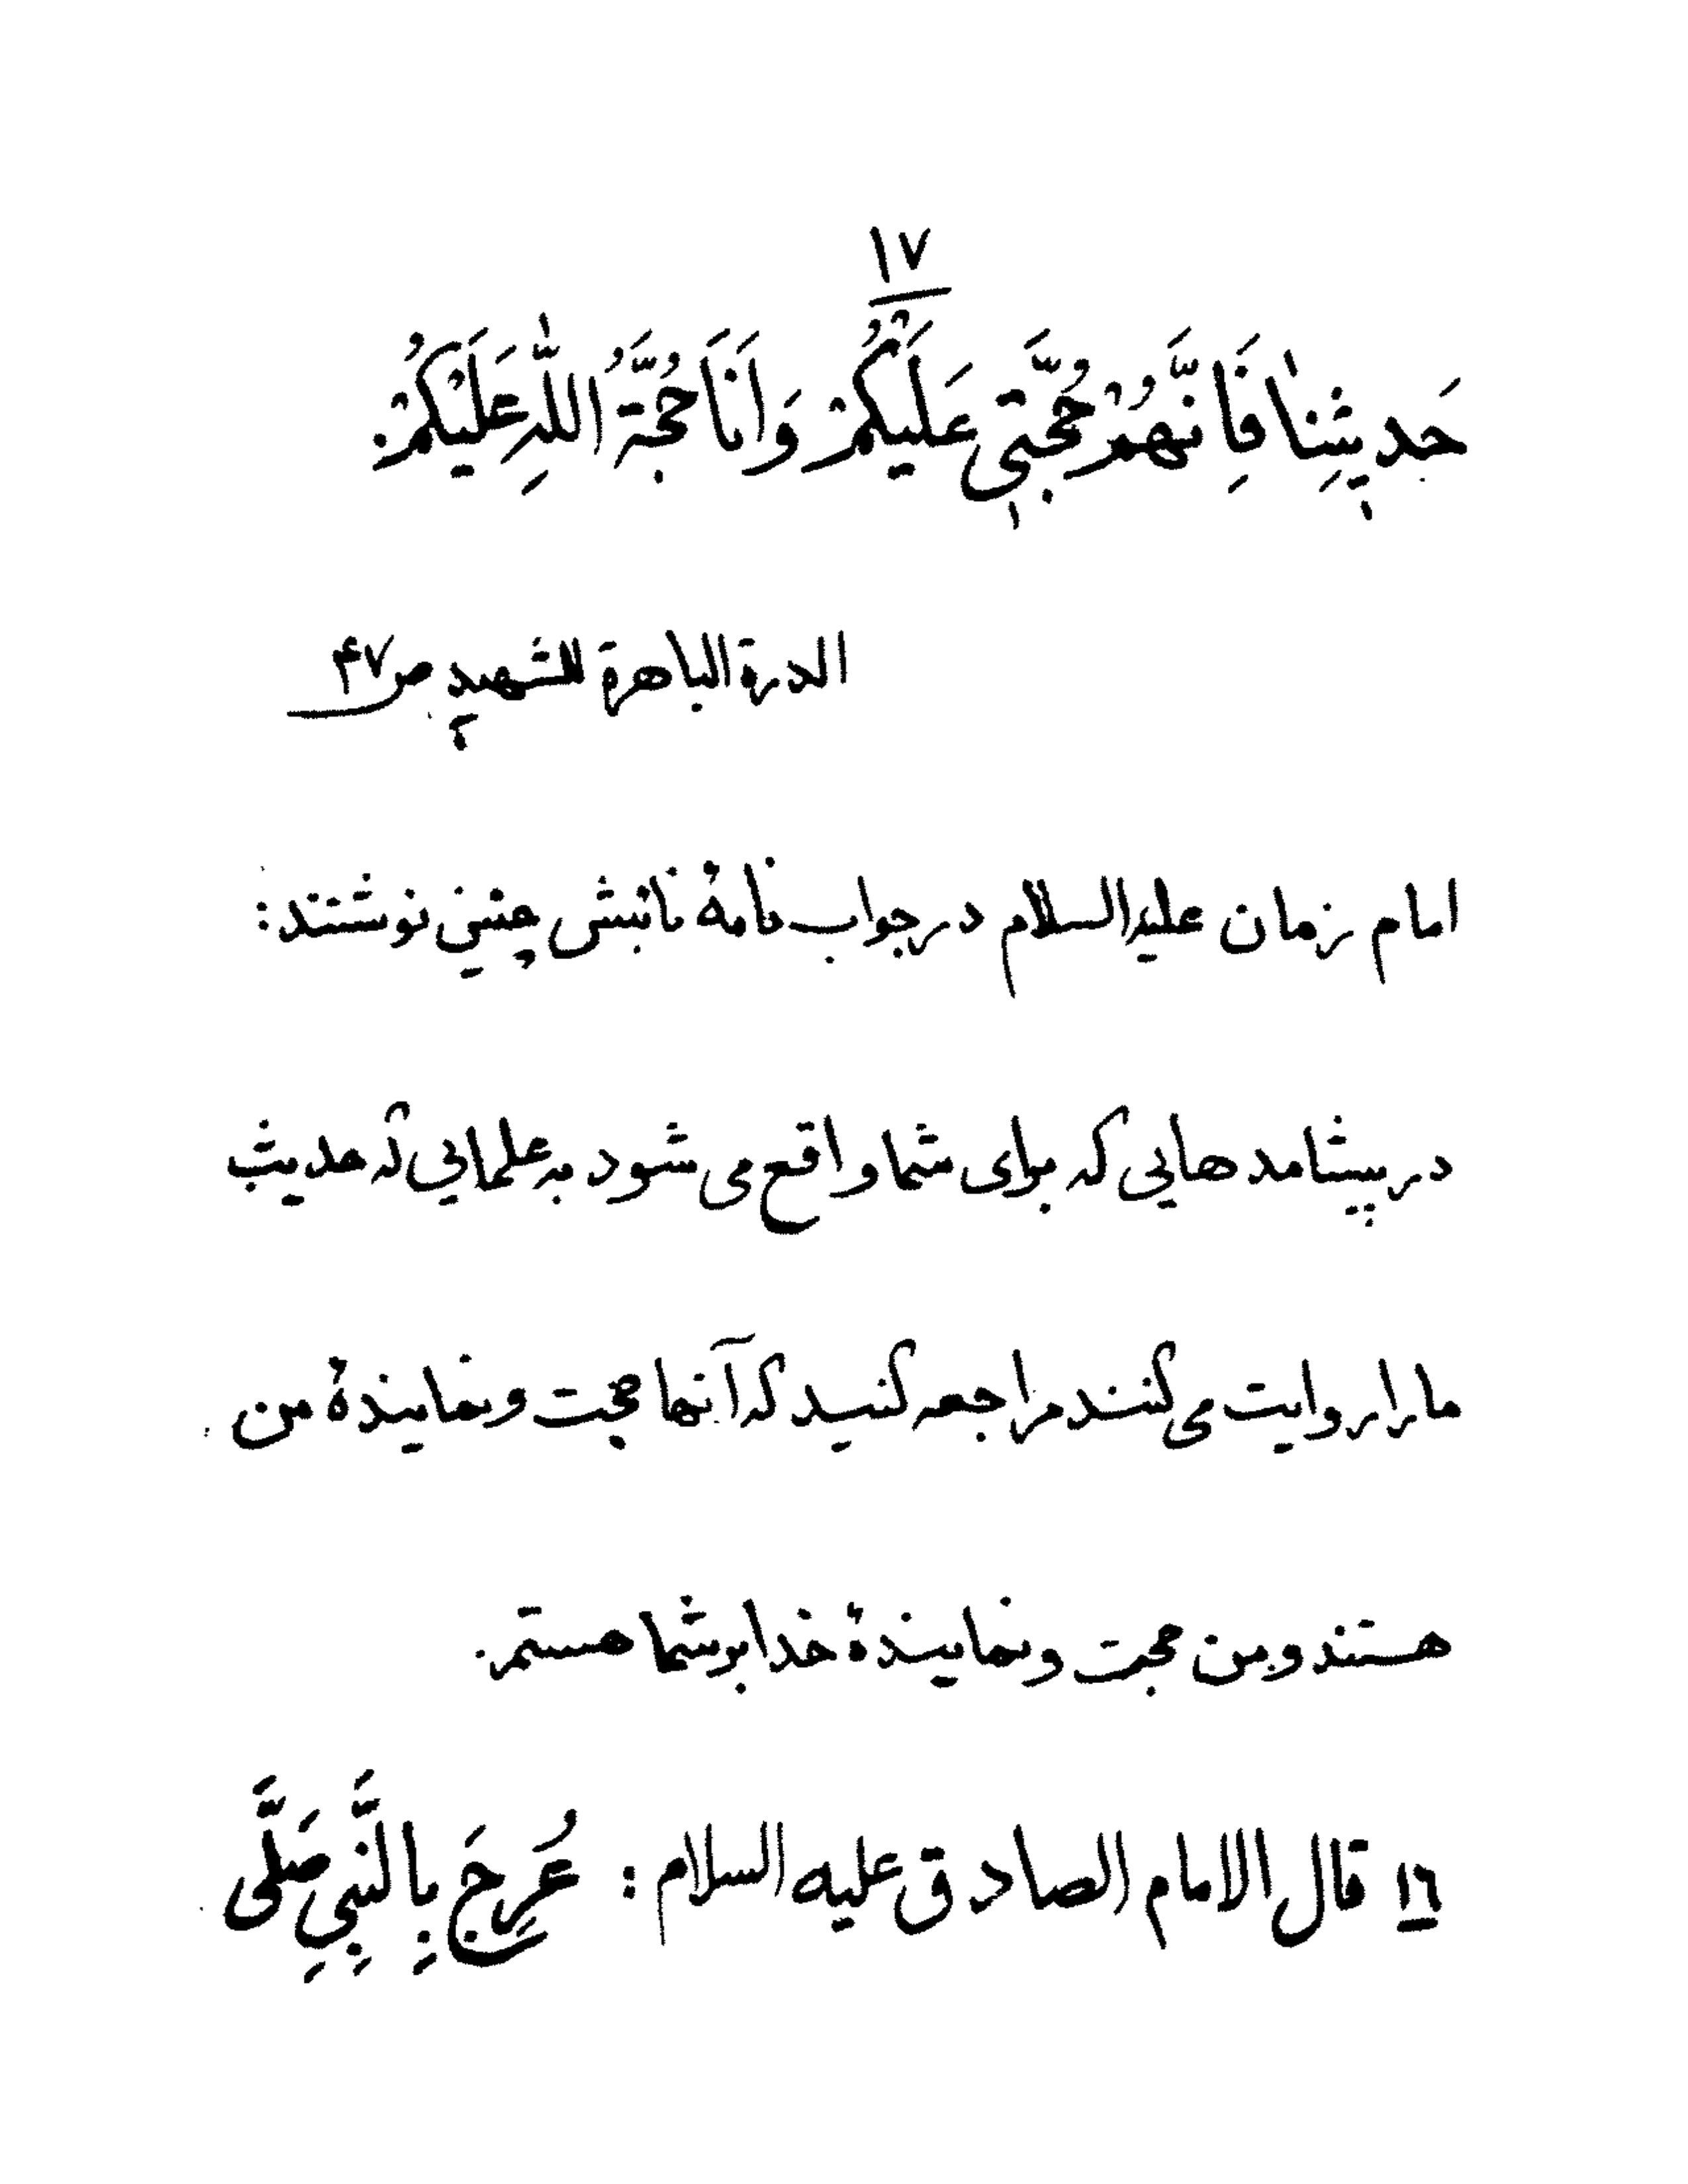 ١٧
حَديثِنٰا فَاِنَّهُمْ حُجَّتي عَلَيْكُمْ وَاَنَا حُجَّةُ اللّٰهِ عَلَيْكُمْ.
الدرة الباهرة للشهيد ص۴۷
امام زمان عليه‌السلام در جواب نامهٔ نائبش چنین نوشتند:
در پیشامدهایی که برای شما واقع می شود به علمایی که حدیث
ما را روایت می کنند مراجعه کنید که آنها حجت و نمایندهٔ من
هستند و من حجت و نمایندهٔ خدا بر شما هستم.
١٦ قال الامام الصادق عليه السلام : عُرِجَ بِالنَّبِيِ صَلَّى